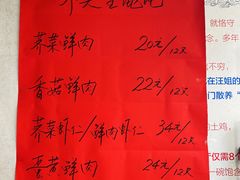 荠菜鲜肉 20元/12只
香菇鲜肉 22元/12只
荠菜虾仁/鲜肉虾仁 34元/12只
韭黄鲜肉 24元/12只
就恪守
念。多年
不穷，
在汪姐的
门散养“
土鸡，
“仅需8
一碗饱含